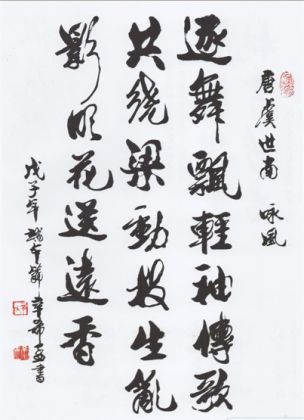 唐虞世南 咏風
逐舞飄輕袖傳歌
共繞梁動枝生亂
影吹花送遠香
戊子年端午節 書